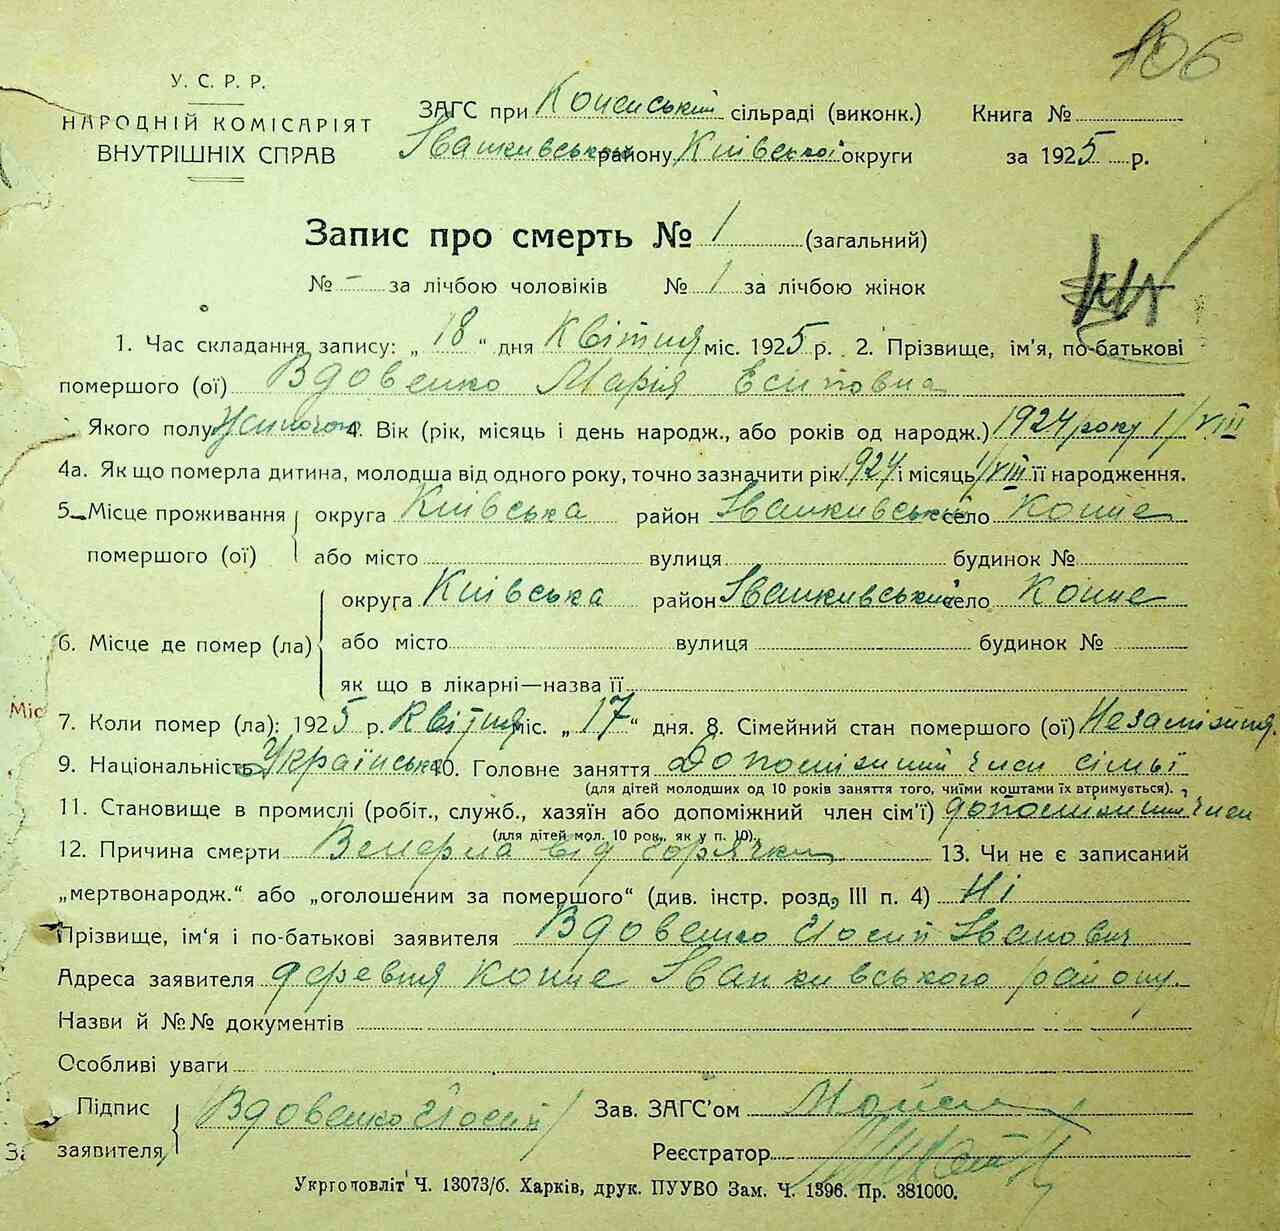 106
У. С. Р. Р.
НАРОДНІЙ КОМІСАРІЯТ
ВНУТРІШНІХ СПРАВ
ЗАГС при сільраді (виконк.)
Іванківського району Київської округи
Книга №
за 1925 р.
Запис про смерть № 1 (загальний)
№ – за лічбою чоловіків № 1 за лічбою жінок
1. Час складання запису: „ 18 “ дня Квітня міс. 1925 р. 2. Прізвище, ім’я, по-батькові
помершого (ої) Вдовенко Марія Есиповна
Якого полу 4. Вік (рік, місяць і день народж., або років од народж.) 1924 року 1/VIII
4а. Як що померла дитина, молодша від одного року, точно зазначити рік 1924 і місяць 1/VIII її народження.
5. Місце проживання помершого (ої) округа Київська район Іванкивський село
або місто вулиця будинок №
6. Місце де помер (ла) округа Київська район Іванкивський село
або місто вулиця будинок №
як що в лікарні—назва її
Міс
7. Коли помер (ла): 1925 р. Квітня міс. „ 17 “ дня. 8. Сімейний стан помершого (ої)
9. Національність Українська 10. Головне заняття сімьї
(для дітей молодших од 10 років заняття того, чиїми коштами їх втримується).
11. Становище в промислі (робіт., служб., хазяїн або допоміжний член сім’ї)
(для дітей мол. 10 рок., як у п. 10).
12. Причина смерти від горячки 13. Чи не є записаний
„мертвонародж.“ або „оголошеним за помершого“ (див. інстр. розд, III п. 4) Ні
Прізвище, ім‘я і по-батькові заявителя Вдовенко Йосип Іванович
Адреса заявителя деревня Іванкивського району.
Назви й №№ документів
Особливі уваги
Підпис заявителя Вдовенко Йосип
Зав. ЗАГС’ом
Реєстратор
Укрголовліт Ч. 13073/б. Харків, друк. ПУУВО Зам. Ч. 1396. Пр. 381000.